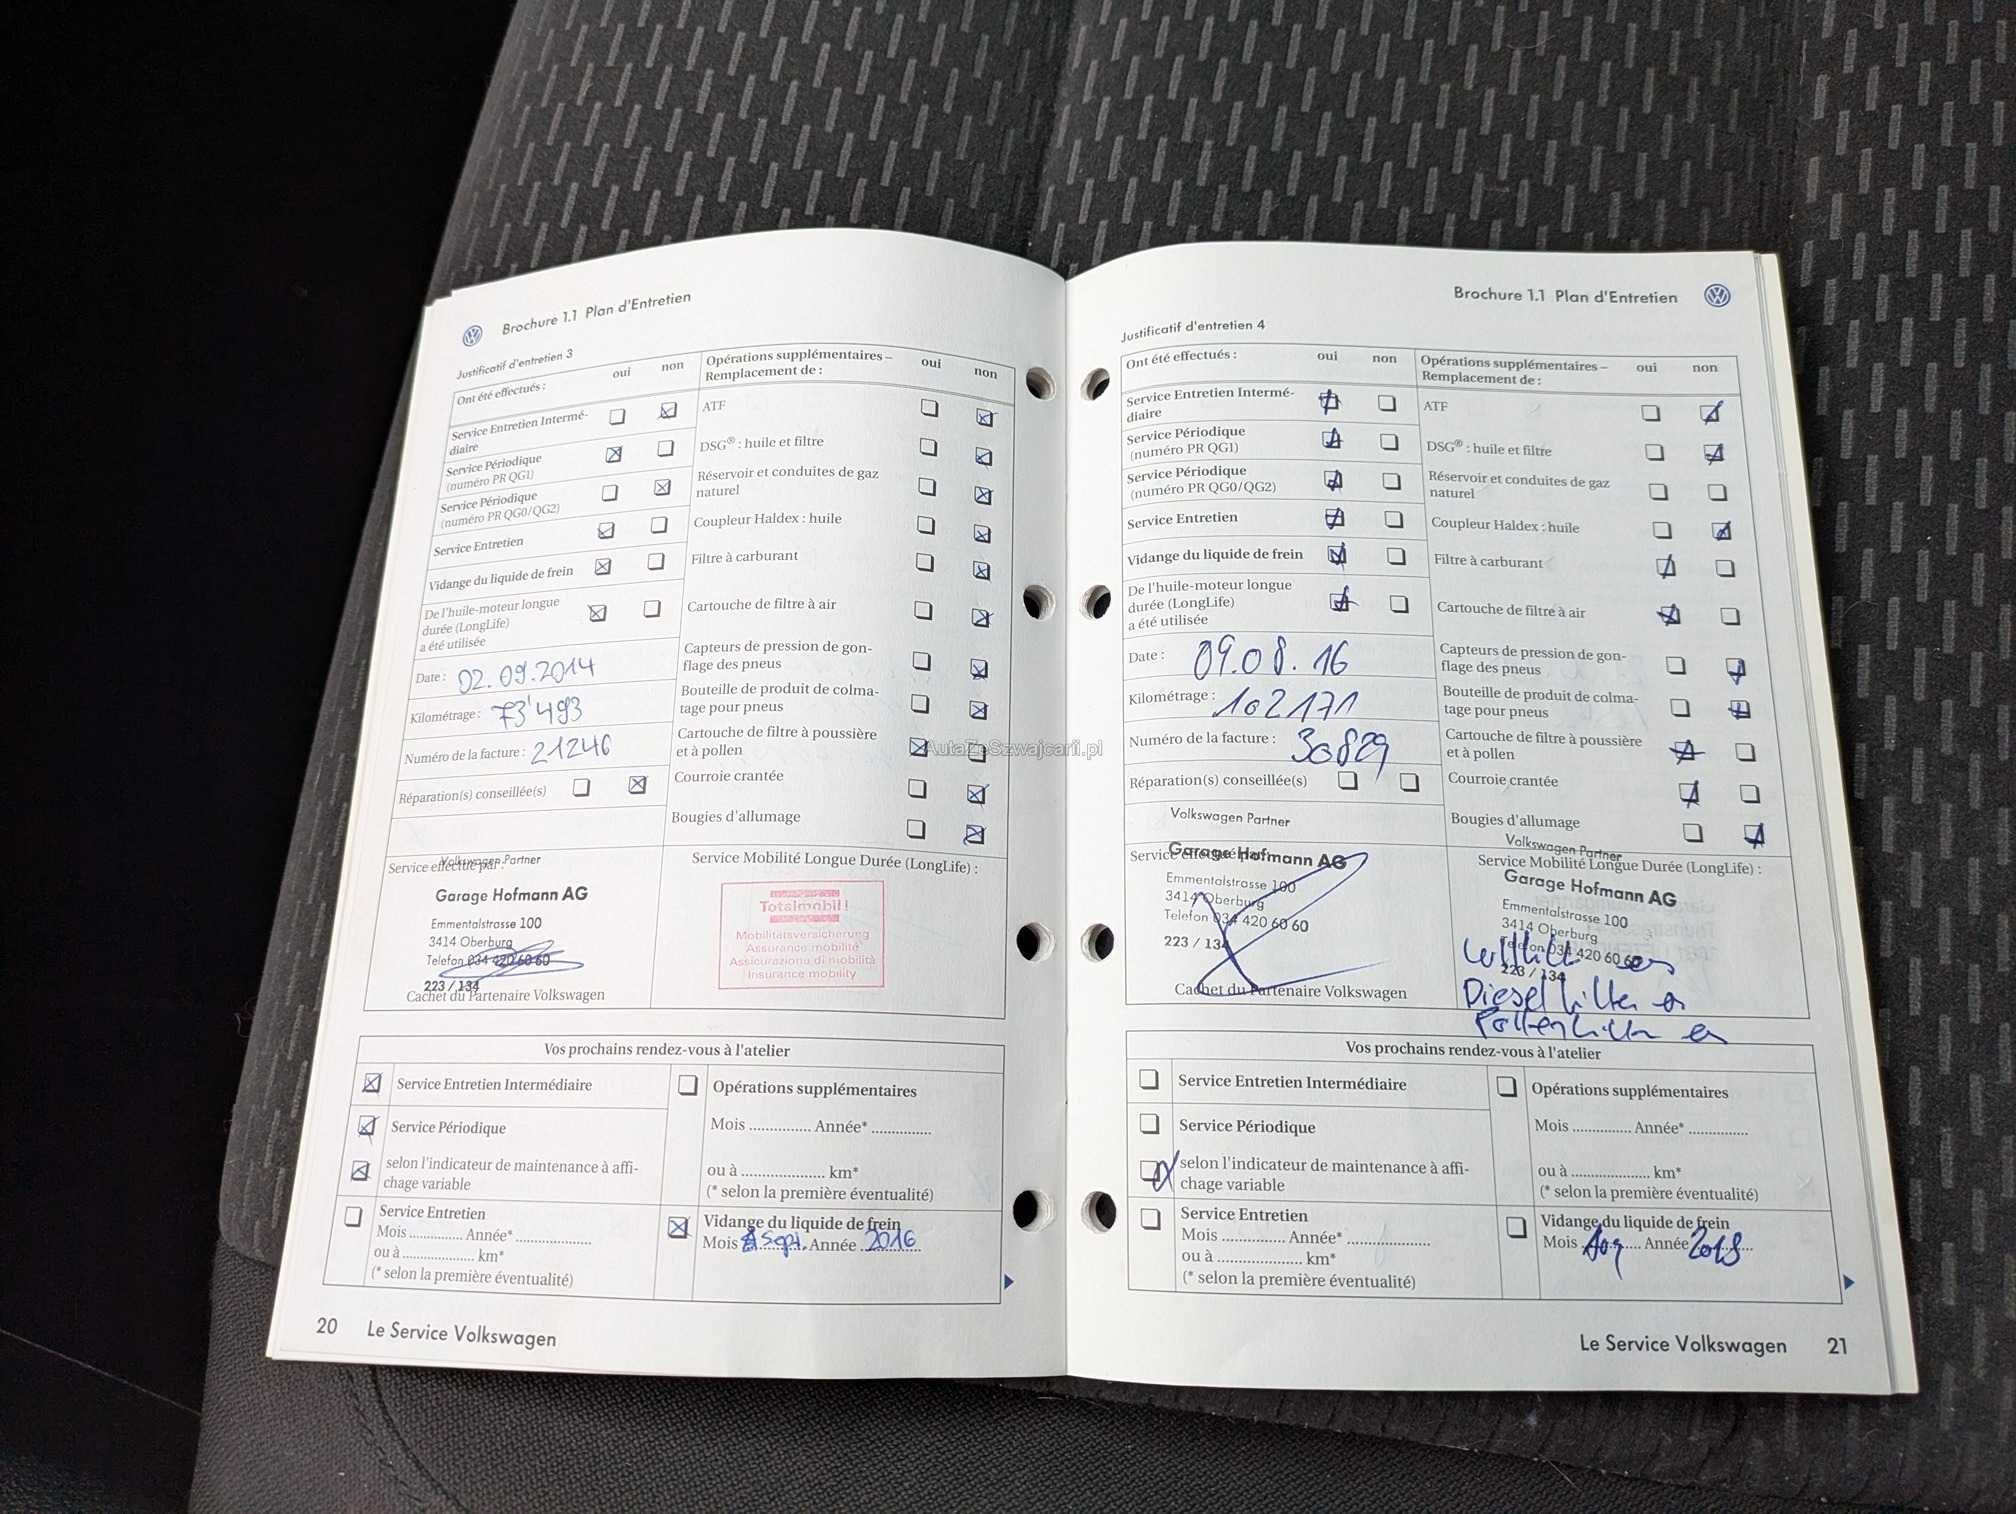 Brochure 1.1 Plan d'Entretien
Justificatif d'entretien 3
Ont été effectués :
oui
non
Service Entretien Intermé-
diaire
Service Périodique
(numéro PR QG1)
Service Périodique
(numéro PR QG0/QG2)
Service Entretien
Vidange du liquide de frein
De l'huile-moteur longue
durée (LongLife)
a été utilisée
Date : 02.09.2014
Kilométrage : 73'493
Numéro de la facture : 21246
Réparation(s) conseillée(s)
Opérations supplémentaires –
Remplacement de :
oui
non
ATF
DSG® : huile et filtre
Réservoir et conduites de gaz
naturel
Coupleur Haldex : huile
Filtre à carburant
Cartouche de filtre à air
Capteurs de pression de gon-
flage des pneus
Bouteille de produit de colma-
tage pour pneus
Cartouche de filtre à poussière
et à pollen
Courroie crantée
Bougies d'allumage
Service effectué par :
Volkswagen Partner
Garage Hofmann AG
Emmentalstrasse 100
3414 Oberburg
Telefon 034 420 60 60
223 / 134
Cachet du Partenaire Volkswagen
Service Mobilité Longue Durée (LongLife) :
Totalmobil!
Mobilitätsversicherung
Assurance mobilité
Assicurazione di mobilità
Insurance mobility
Vos prochains rendez-vous à l'atelier
Service Entretien Intermédiaire
Service Périodique
selon l'indicateur de maintenance à affi-
chage variable
Service Entretien
Mois .............. Année* ................
ou à .................. km*
(* selon la première éventualité)
Opérations supplémentaires
Mois .............. Année* ..............
ou à .................... km*
(* selon la première éventualité)
Vidange du liquide de frein
Mois Sept. Année 2016
20 Le Service Volkswagen
Brochure 1.1 Plan d'Entretien
Justificatif d'entretien 4
Ont été effectués :
oui
non
Service Entretien Intermé-
diaire
Service Périodique
(numéro PR QG1)
Service Périodique
(numéro PR QG0/QG2)
Service Entretien
Vidange du liquide de frein
De l'huile-moteur longue
durée (LongLife)
a été utilisée
Date : 09.08.16
Kilométrage : 102171
Numéro de la facture : 30829
Réparation(s) conseillée(s)
Opérations supplémentaires –
Remplacement de :
oui
non
ATF
DSG® : huile et filtre
Réservoir et conduites de gaz
naturel
Coupleur Haldex : huile
Filtre à carburant
Cartouche de filtre à air
Capteurs de pression de gon-
flage des pneus
Bouteille de produit de colma-
tage pour pneus
Cartouche de filtre à poussière
et à pollen
Courroie crantée
Bougies d'allumage
Volkswagen Partner
Service effectué par :
Garage Hofmann AG
Emmentalstrasse 100
3414 Oberburg
Telefon 034 420 60 60
223 / 134
Cachet du Partenaire Volkswagen
Volkswagen Partner
Service Mobilité Longue Durée (LongLife) :
Garage Hofmann AG
Emmentalstrasse 100
3414 Oberburg
Telefon 034 420 60 60
223 / 134
Luftfilter
Dieselfilter
Pollenfilter
Vos prochains rendez-vous à l'atelier
Service Entretien Intermédiaire
Service Périodique
selon l'indicateur de maintenance à affi-
chage variable
Service Entretien
Mois .............. Année* ................
ou à .................... km*
(* selon la première éventualité)
Opérations supplémentaires
Mois .............. Année* ..............
ou à .................... km*
(* selon la première éventualité)
Vidange du liquide de frein
Mois Aug Année 2018
Le Service Volkswagen 21
AutaZeSzwajcarii.pl